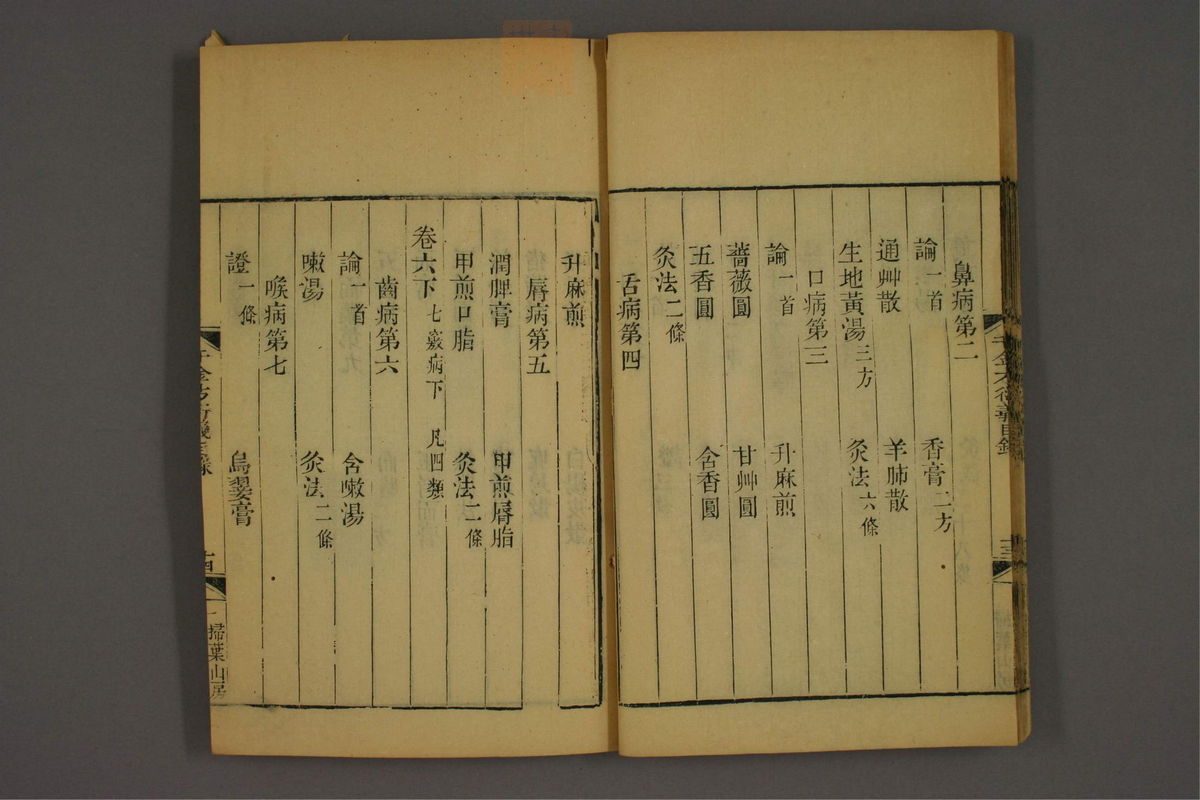 鼻病第二
論一首　香膏二方
通艸散　羊肺散
生地黃湯三方　灸法六條
口病第三
論一首　升麻煎
薔薇圓　甘艸圓
五香圓　含香圓
灸法二條
舌病第四
升麻煎
脣病第五
潤脾膏　甲煎脣脂
甲煎口脂　灸法二條
卷六下　七竅病下　凡四類
齒病第六
論一首　含漱湯
漱湯　灸法二條
喉病第七
證一條　烏翣膏
千金方衍義目錄　十三
千金方衍義目錄　十四　掃葉山房